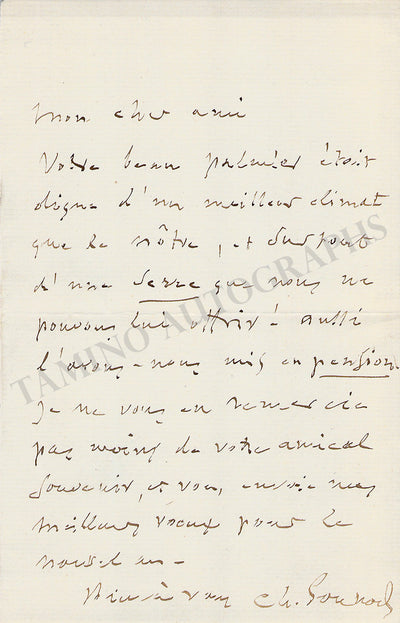 Mon cher ami
Votre beau palmier étoit
digne d'un meilleur climat
que le nôtre, et surtout
d'une serre que nous ne
pouvons lui offrir : aussi
l'avons-nous mis en pension.
Je ne vous en remercie
pas moins de votre amical
souvenir, et vous envoie mes
meilleurs vœux pour le
nouvel an-
à vous Ch. Gounod
TAMINO AUTOGRAPHS